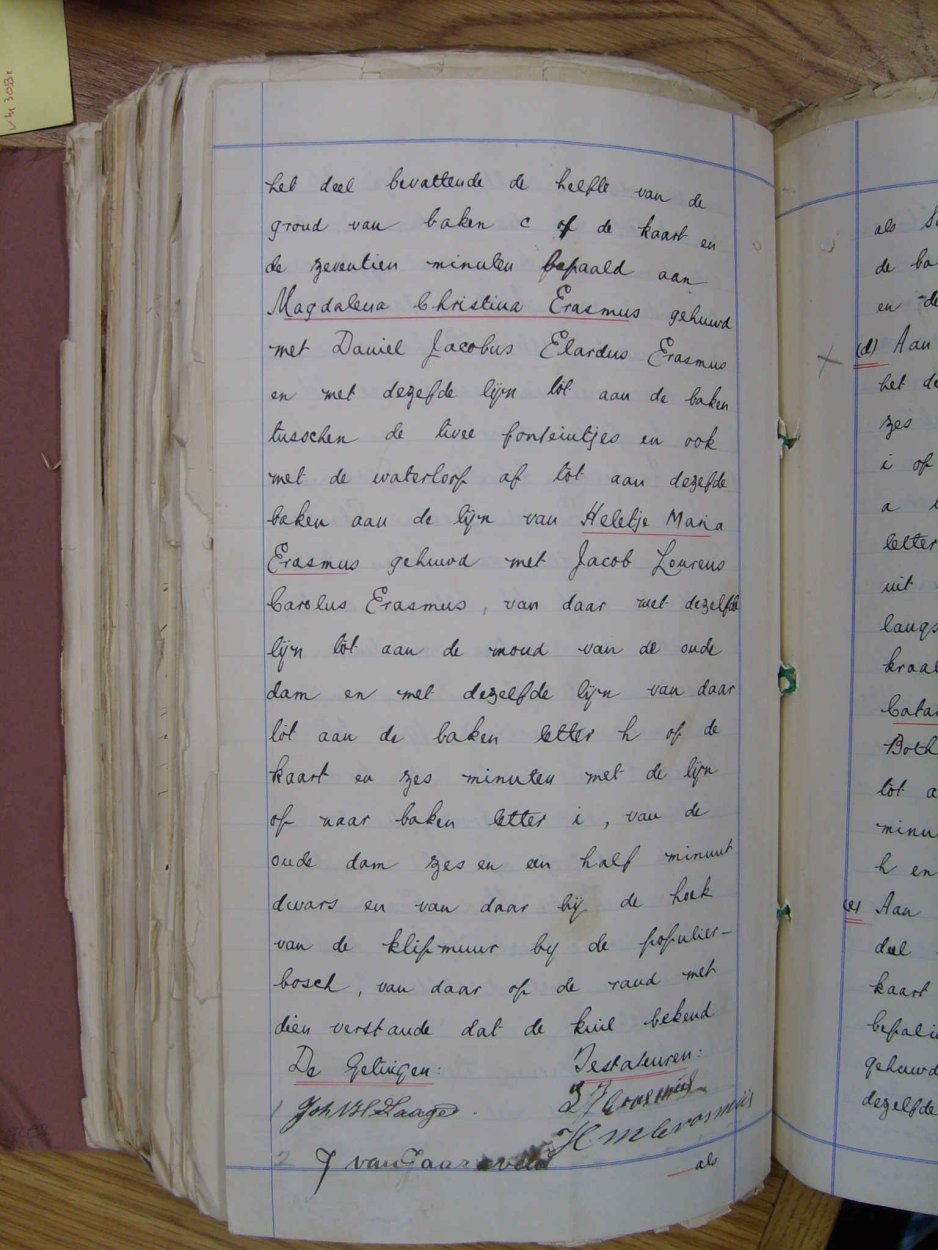 het deel bevattende de helfte van de
grond van baken c op de kaart en
de zeventien minuten bepaald aan
Magdalena Christina Erasmus gehuwd
met Daniel Jacobus Elardus Erasmus
en met dezefde lijn tot aan de baken
tusschen de twee fonteintjes en ook
met de waterloop af tot aan dezefde
baken aan de lijn van Heletje Maria
Erasmus gehuwd met Jacob Lourens
Carolus Erasmus, van daar met dezelfde
lijn tot aan de mond van de oude
dam en met dezelfde lijn van daar
tot aan de baken letter h op de
kaart en zes minuten met de lijn
op naar baken letter i, van de
oude dam zes en een half minuut
dwars en van daar bij de hoek
van de klipmuur by de populier-
bosch, van daar op de rand met
dien verstande dat de kuil bekend
De Getingen: Testateuren:
1
2 J van Jaarsveld
als
als
de ba
en de
(d) Aan
het de
zes
i op
a
letter
uit
langs
kraal
Catar
Both
tot a
minu
h en
(e) Aan
deel
kaart
bepali
gehuwd
dezelfde